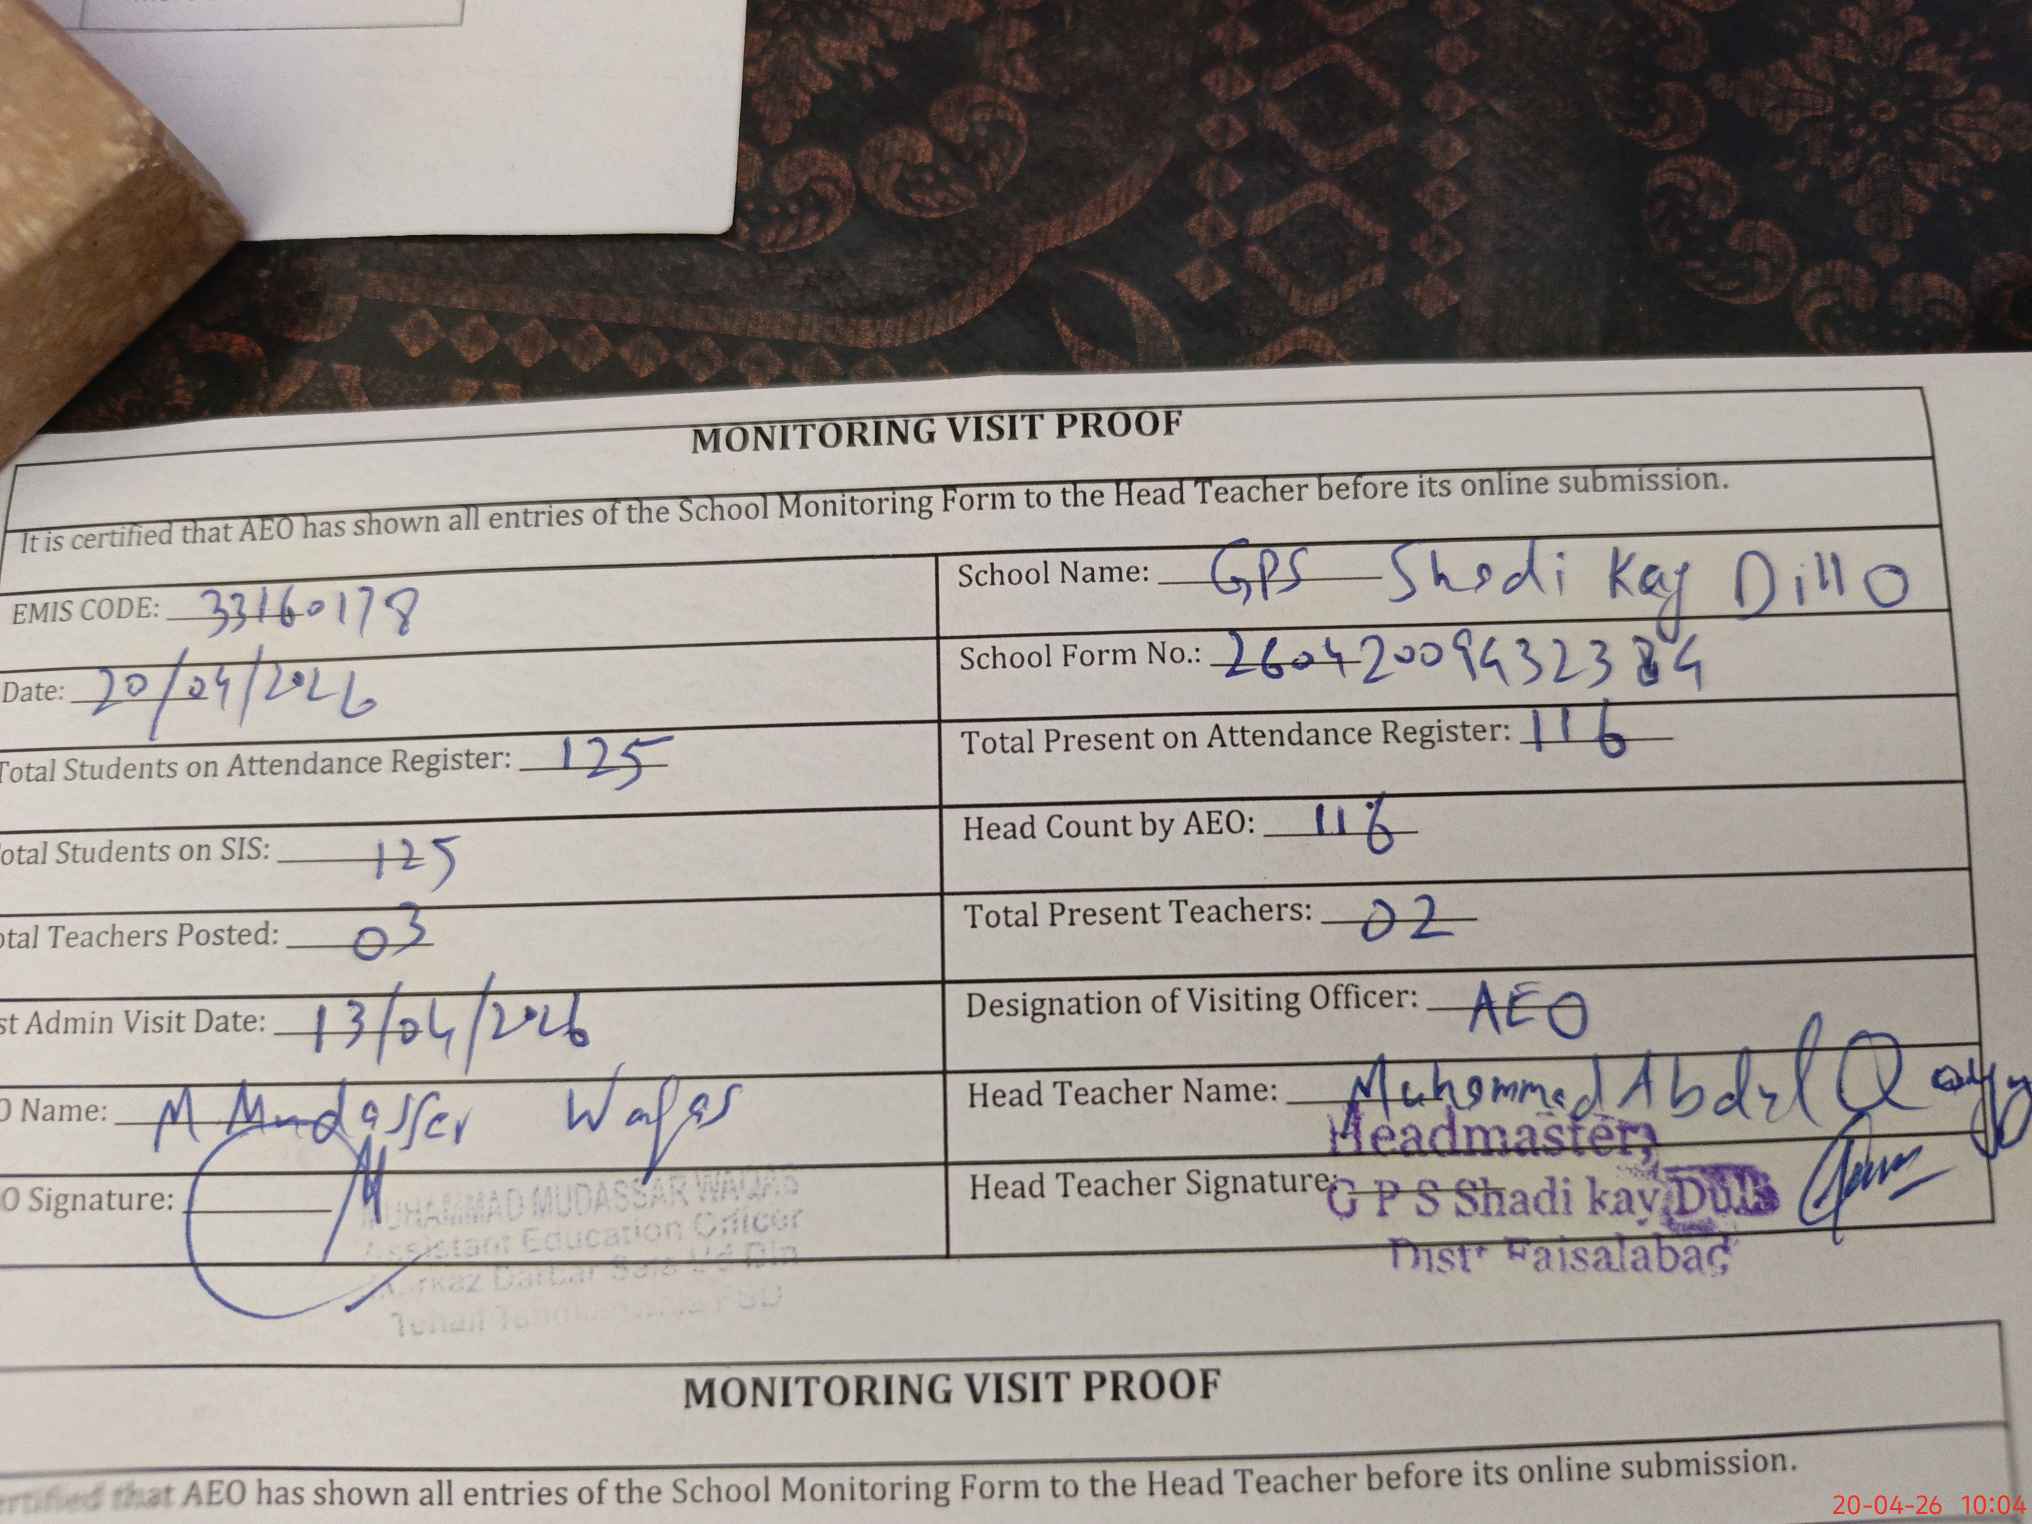 MONITORING VISIT PROOF
It is certified that AEO has shown all entries of the School Monitoring Form to the Head Teacher before its online submission.
EMIS CODE: 33160178
School Name: GPS Shadi Kay Dillo
Date: 20/04/2026
School Form No.:
Total Students on Attendance Register: 125
Total Present on Attendance Register: 116
otal Students on SIS: 125
Head Count by AEO:
otal Teachers Posted: 03
Total Present Teachers: 02
st Admin Visit Date: 13/04/2026
Designation of Visiting Officer: AEO
O Name: M Mudasser Waqas
Head Teacher Name: Muhammad Abdul Qayy
O Signature:
Head Teacher Signature:
MUHAMMAD MUDASSAR WAQAS
Assistant Education Officer
Markaz Darbar
Headmaster,
G P S Shadi kay
Distt Faisalabad
MONITORING VISIT PROOF
ertified that AEO has shown all entries of the School Monitoring Form to the Head Teacher before its online submission.
20-04-26 10:04